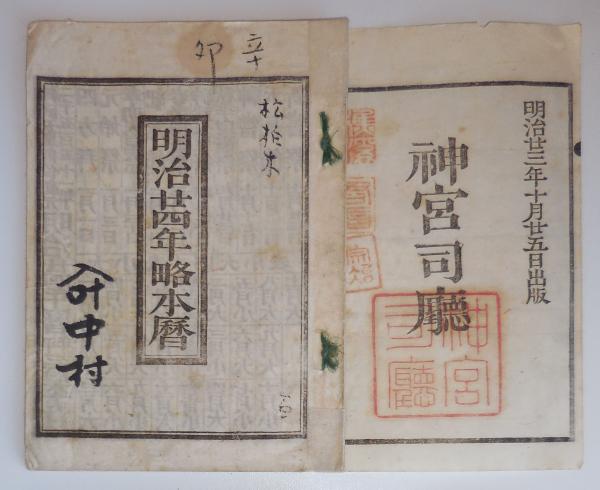 明治廿三年十月廿五日出版
神宮司廳
神宮
司廳
辛
卯
松柏木
明治廿四年略本暦
中村